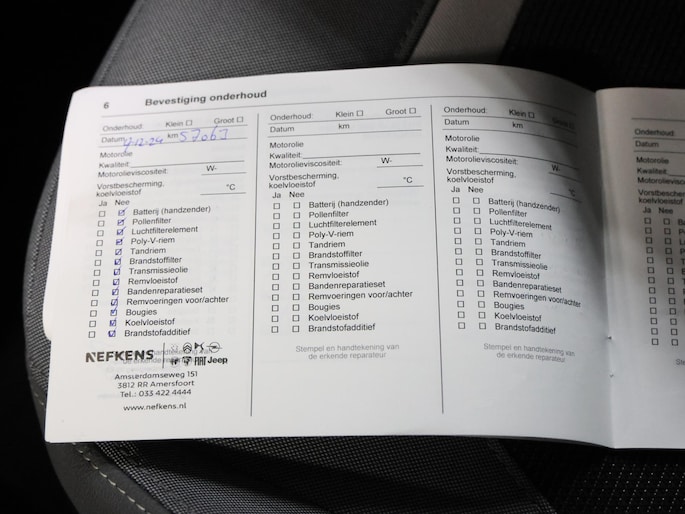 6 Bevestiging onderhoud
Onderhoud: Klein Groot
Datum 9.12.24 km 57063
Motorolie
Kwaliteit:
Motorolieviscositeit: W-
Vorstbescherming, koelvloeistof °C
Ja Nee
Batterij (handzender)
Pollenfilter
Luchtfilterelement
Poly-V-riem
Tandriem
Brandstoffilter
Transmissieolie
Remvloeistof
Bandenreparatieset
Remvoeringen voor/achter
Bougies
Koelvloeistof
Brandstofadditief
NEFKENS
FIAT Jeep
Amsterdamseweg 151
3812 RR Amersfoort
Tel.: 033 422 4444
www.nefkens.nl
Onderhoud: Klein Groot
Datum km
Motorolie
Kwaliteit:
Motorolieviscositeit: W-
Vorstbescherming, koelvloeistof °C
Ja Nee
Batterij (handzender)
Pollenfilter
Luchtfilterelement
Poly-V-riem
Tandriem
Brandstoffilter
Transmissieolie
Remvloeistof
Bandenreparatieset
Remvoeringen voor/achter
Bougies
Koelvloeistof
Brandstofadditief
Stempel en handtekening van
de erkende reparateur
Onderhoud: Klein Groot
Datum km
Motorolie
Kwaliteit:
Motorolieviscositeit: W-
Vorstbescherming, koelvloeistof °C
Ja Nee
Batterij (handzender)
Pollenfilter
Luchtfilterelement
Poly-V-riem
Tandriem
Brandstoffilter
Transmissieolie
Remvloeistof
Bandenreparatieset
Remvoeringen voor/achter
Bougies
Koelvloeistof
Brandstofadditief
Stempel en handtekening van
de erkende reparateur
Onderhoud:
Datum
Motorolie
Kwaliteit:
Vorstbescherming,
koelvloeistof
Ja Nee